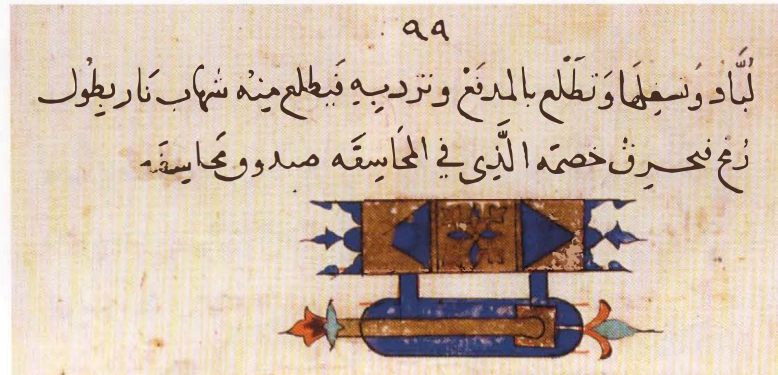 ٩٩
لُبَّاد وَتشعلها وَتطَلع بالمدفَع وتزديه فَيطلع منِه شهَاب نَار بطُول
رُمح فيحرق خصمَه الَّذِى في المحَاسِقَه صندوق محَاسِقَه